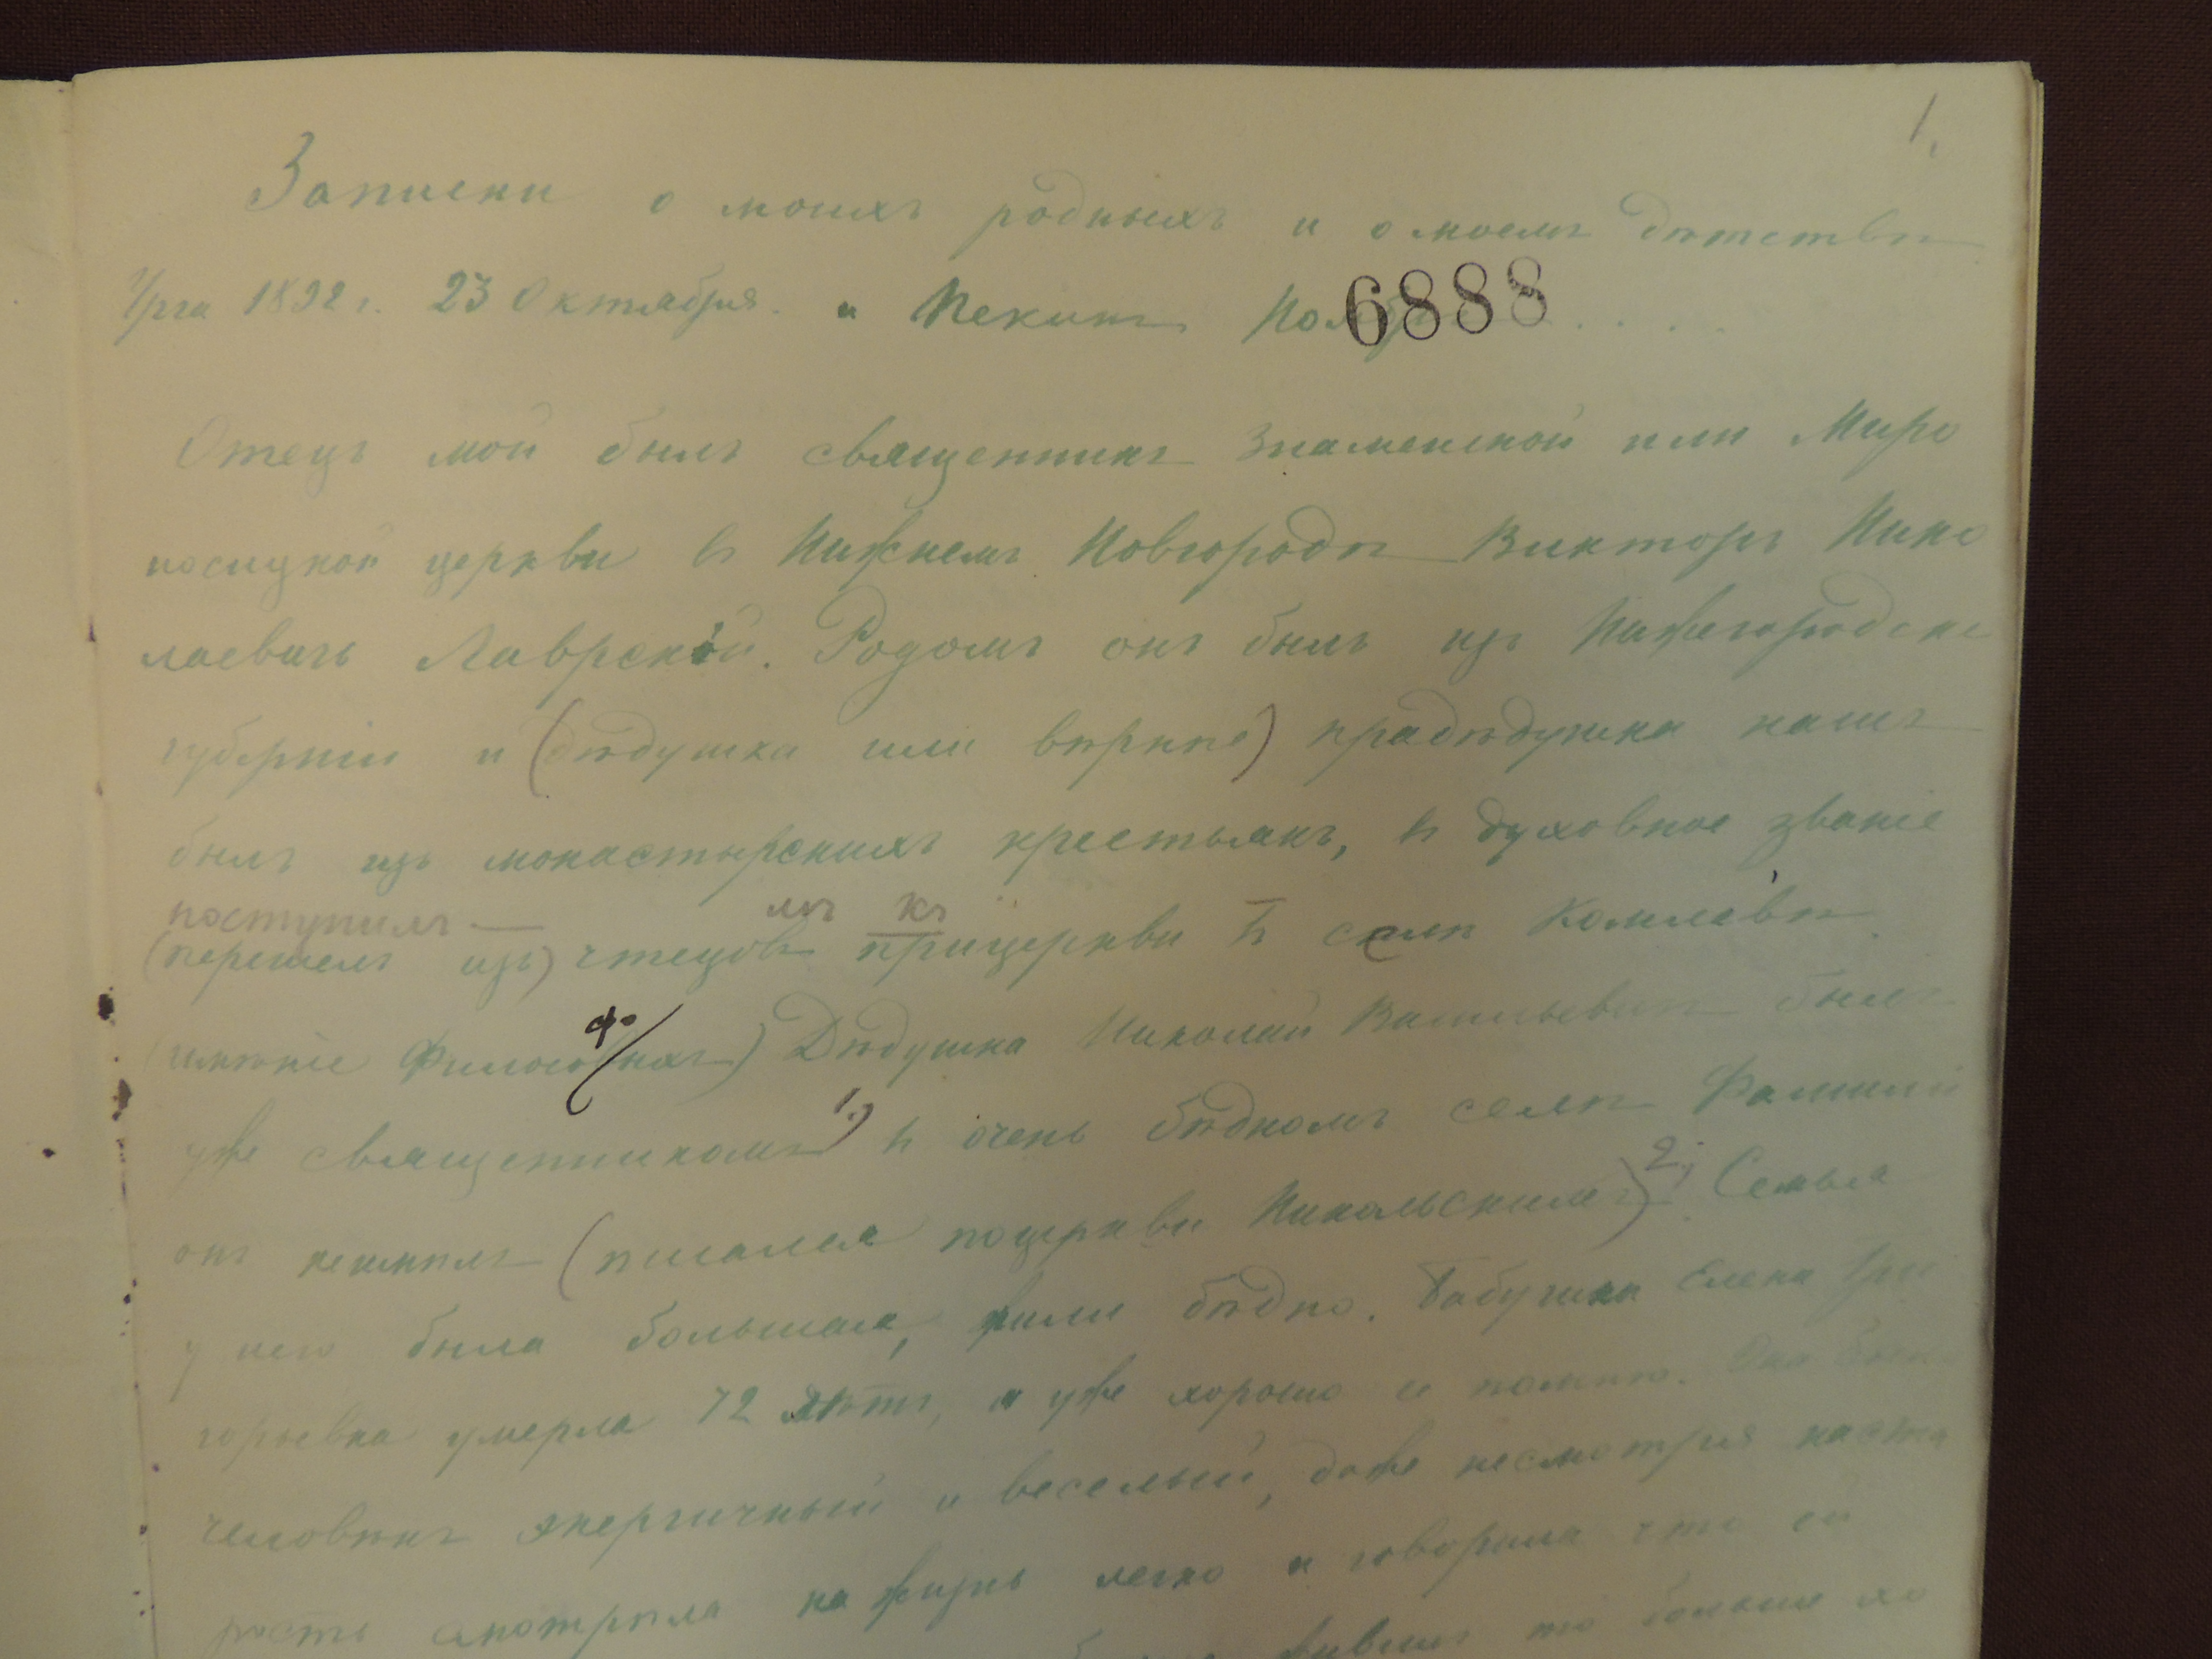 1.
Записки о моихъ родныхъ и о моемъ дѣтствѣ
Урга 1892 г. 23 Октября. и Пекинъ Ноябрь . . . .
6888
Отецъ мой былъ священникъ Знаменской или Миро
носицкой церкви въ Нижнемъ Новгородѣ Викторъ Нико
лаевичъ Лаврскій. Родомъ онъ былъ изъ Нижегородск
губерніи и (дѣдушка или вѣрнѣе) прадѣдушка нашъ
былъ изъ монастырскихъ крестьянъ, въ духовное званіе
поступилъ — мъ къ
(перешелъ изъ) чтецовъ прицеркви въ селѣ Комлевѣ.
ф
(имѣніе Филосо ) Дѣдушка Николай Васильевичъ былъ
уже священникомъ 1) въ очень бѣдномъ селѣ Фамиліи
онъ неимѣлъ (писался поцеркви Никольскимъ) 2) Семья
у него была большая, жили бѣдно. Бабушка Елена Гри
горьевна умерла 72 лѣтъ, я уже хорошо ее помню. Она была
человѣкъ энергичный и веселый, даже несмотря наста
рость смотрѣла на жизнь легко и говорила что ей
то больше хо